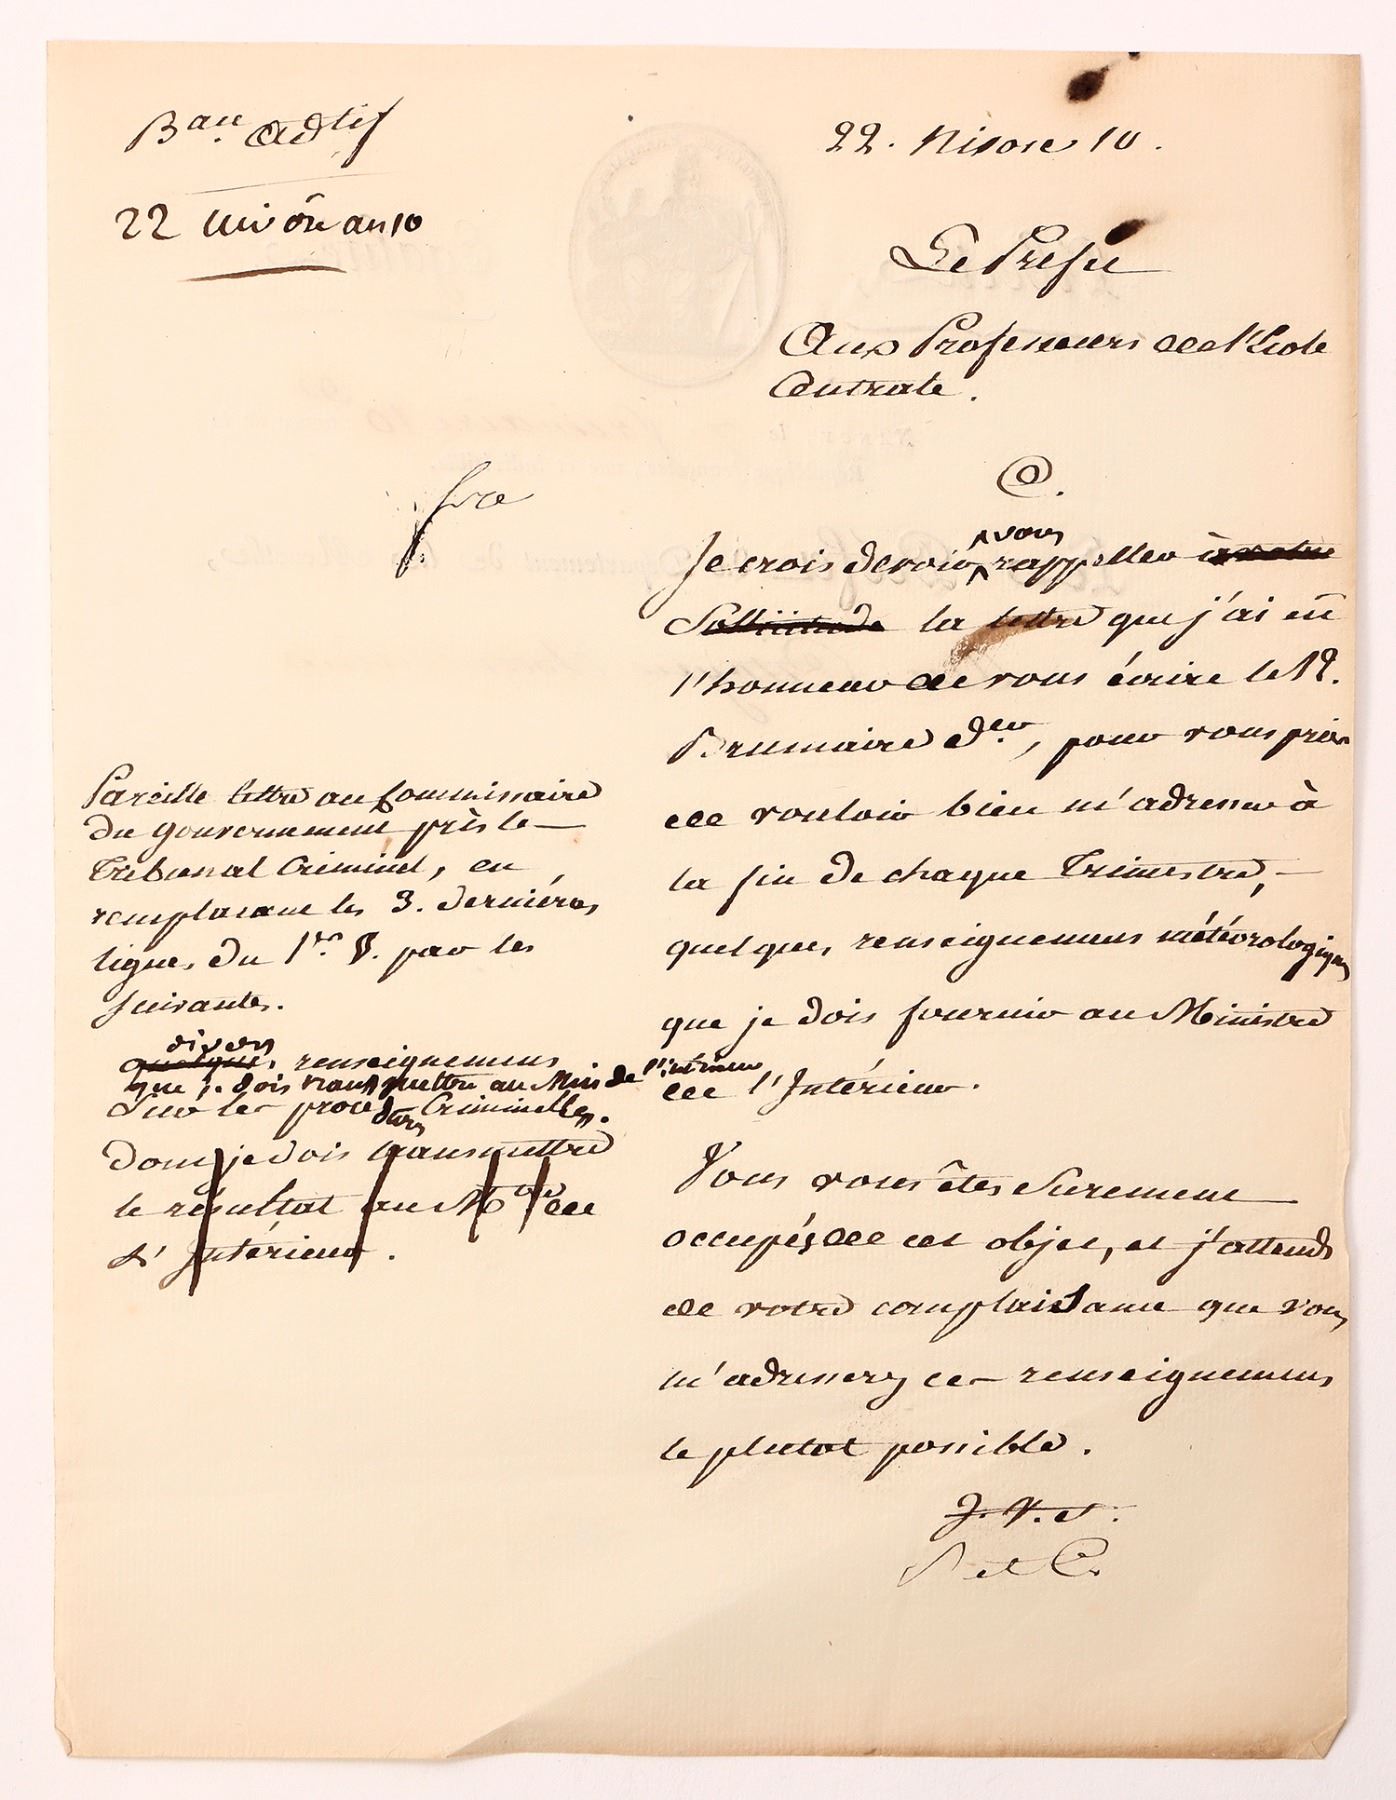 Bau. adtif
22 nivôse an 10
22. Nivose 10.
Le Prefet
Aux Professeurs de l'Ecole
Centrale.
fre
Je crois devoir vous rappeller à votre
Sollicitude la lettre que j'ai eu
l'honneur de vous écrire le 12.
Brumaire der, pour vous prier
de vouloir bien m'adresser à
la fin de chaque Trimestre,
quelques renseignemens météorologiques
que je dois fournir au Ministre
de l'Intérieur.
Vous vous êtes Surement
occupés de cet objet, et j'attends
de votre complaisance que vous
m'adresserez ces renseignemens
le plutot possible.
J. V. S.
S et C.
Pareille lettre au Commissaire
du Gouvernement près le
Tribunal Criminel, en
remplacant les 3. derniéres
lignes du 1er. §. par les
suivantes.
divers
quelques renseignemens
que je dois transmettre au Min de l'intérieur
Sur les procedures Criminelles.
dont je dois transmettre
le résultat au Mtre de
L'Intérieur.